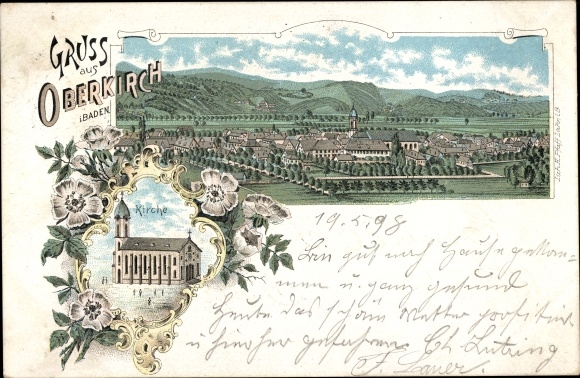 GRUSS
aus
OBERKIRCH
i.BADEN.
Kirche
19.5.98
Bin gut nach Hause gekom-
men u. ganz gesund
Heute das schöne Wetter profitirt
u hierher gefahren